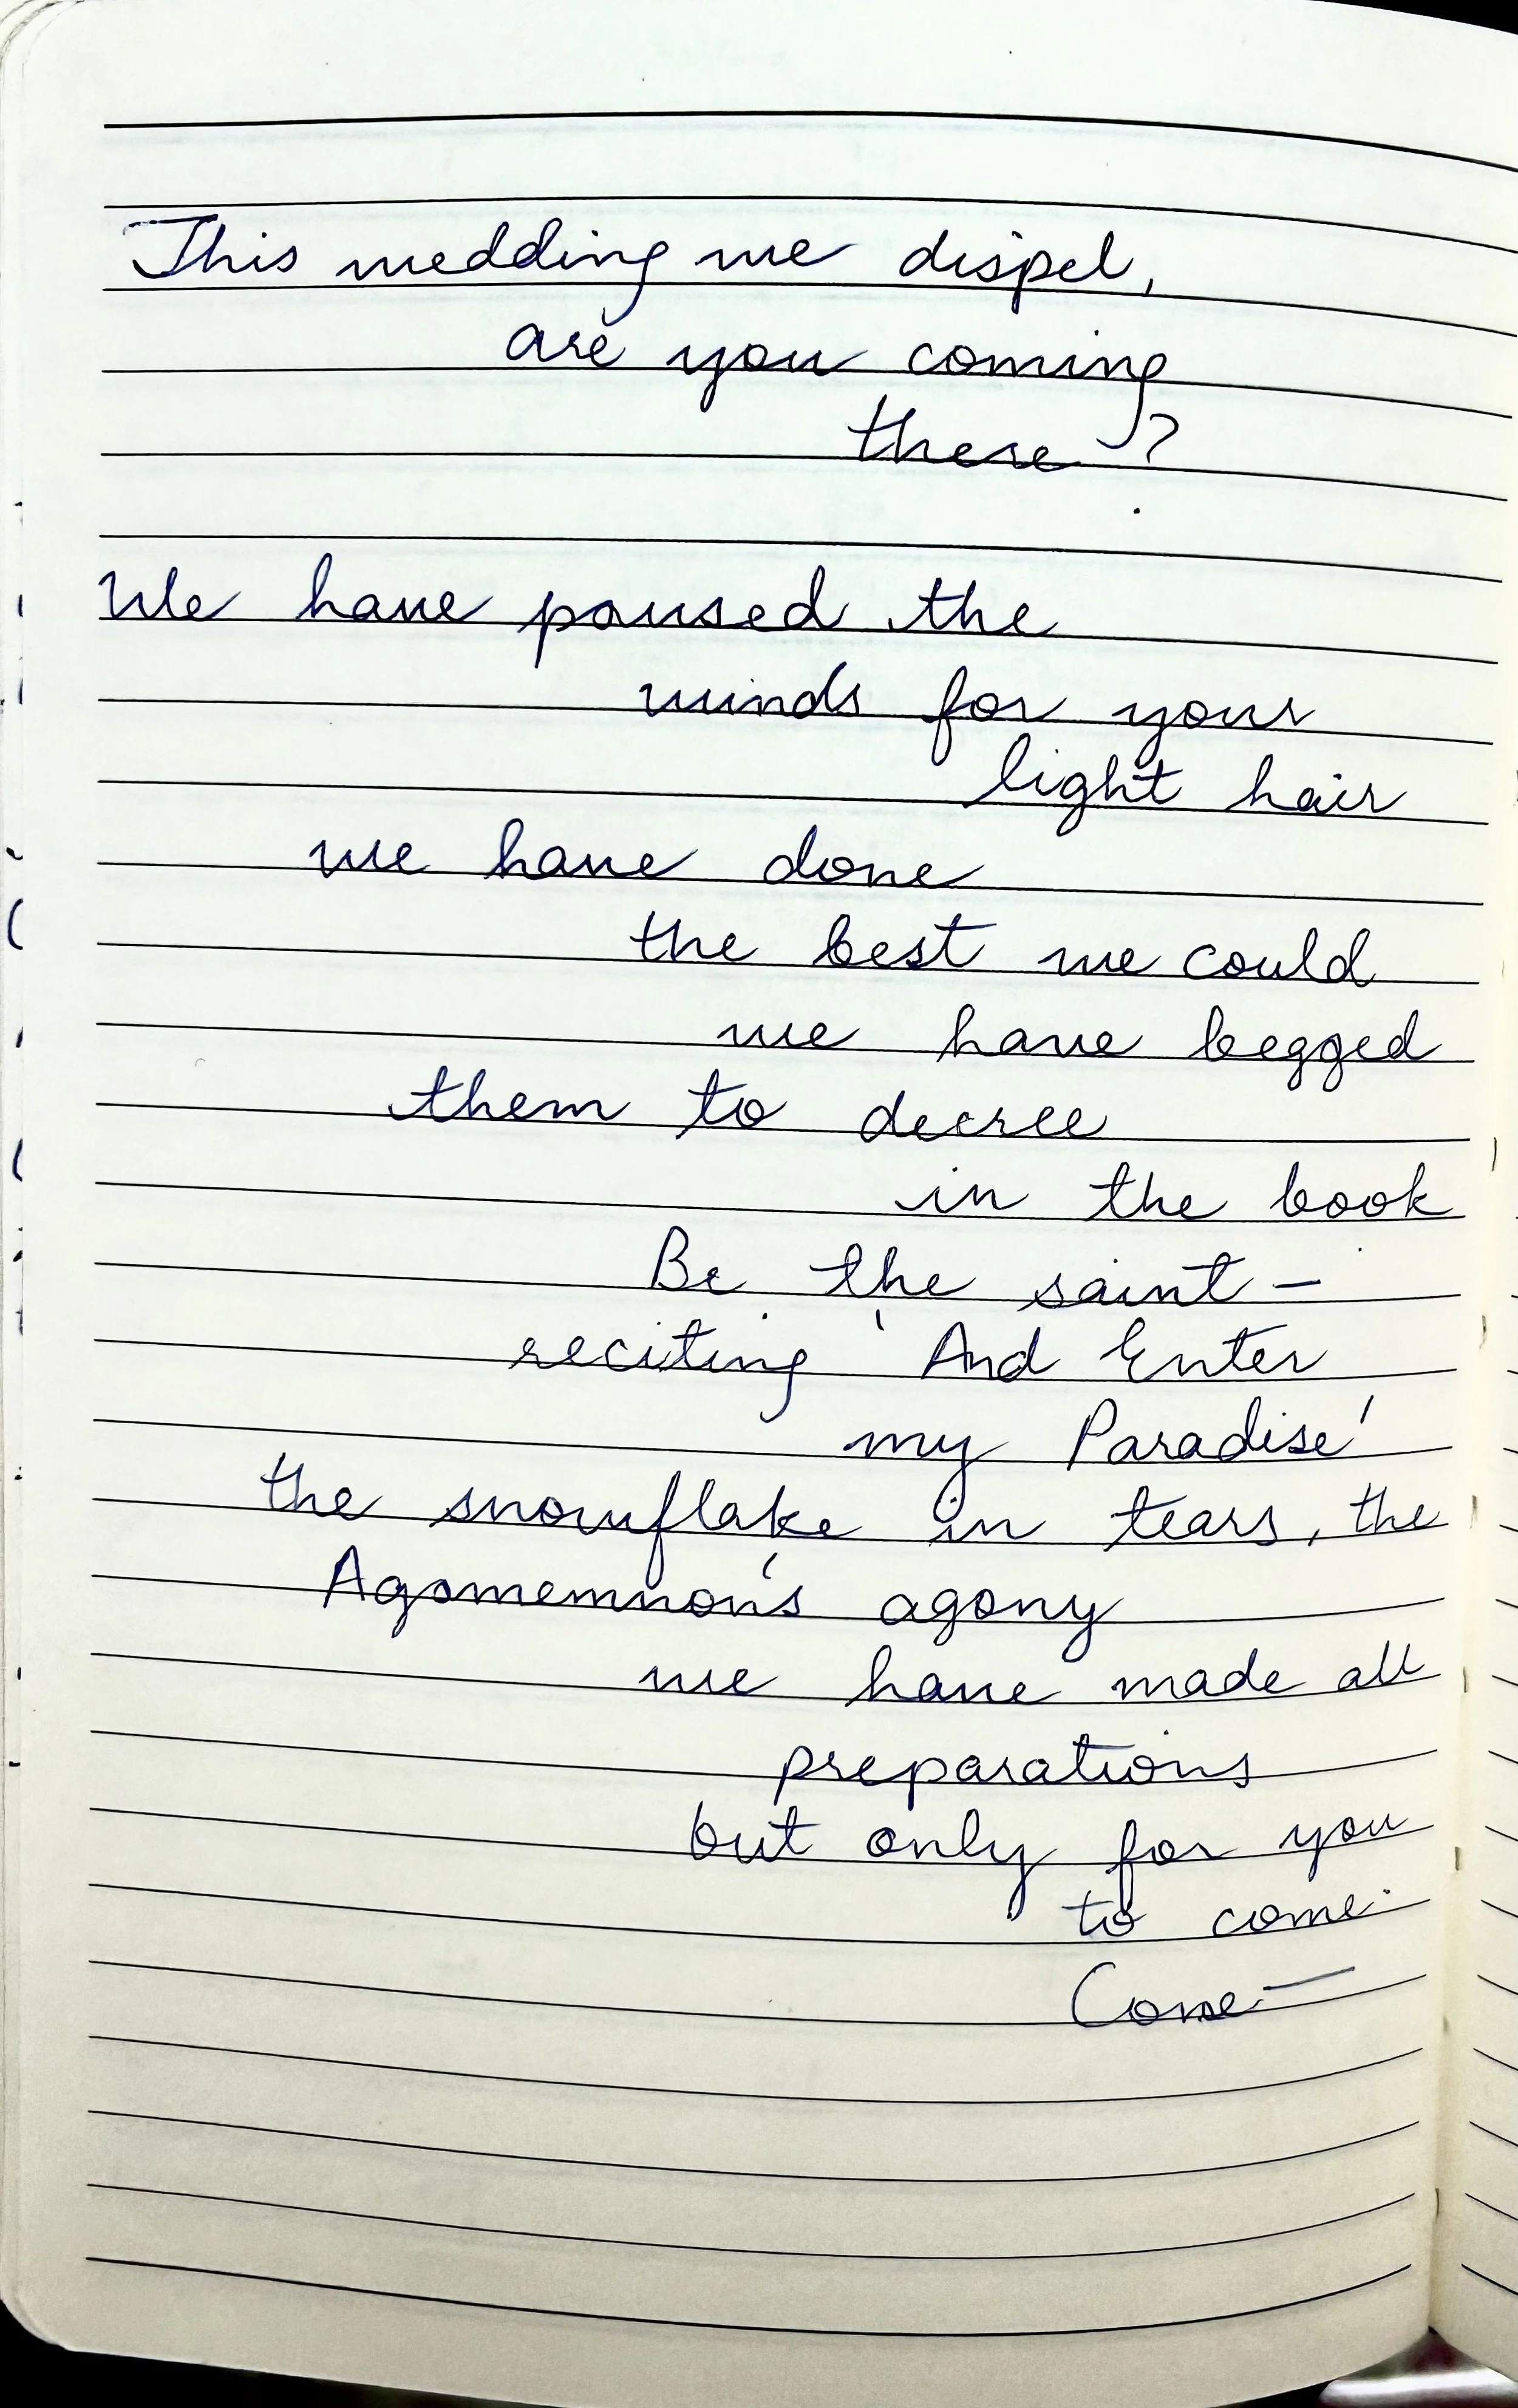 This wedding we dispel,
are you coming
there?
We have paused the
winds for your
light hair
we have done
the best we could
we have begged
them to decree
in the book
Be the saint –
reciting 'And Enter
my Paradise'
the snowflake in tears, the
Agomemnon's agony
we have made all
preparations
but only for you
to come.
Come —